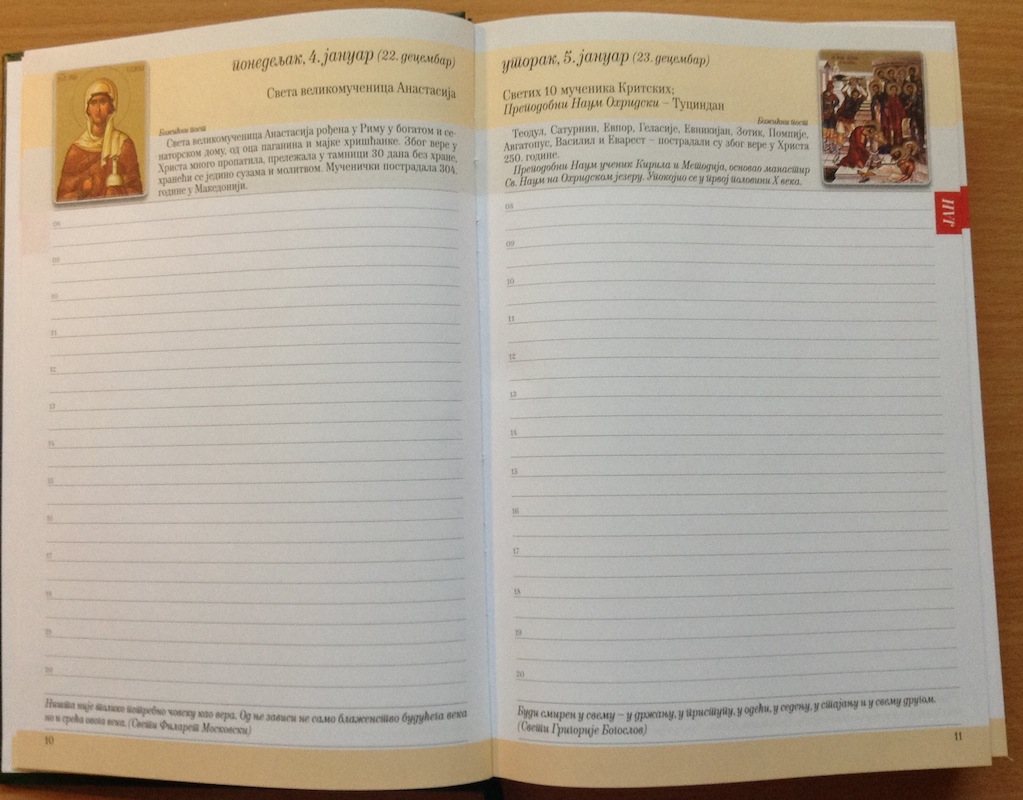 понедељак, 4. јануар (22. децембар)
Света великомученица Анастасија
Божићни пост
Света великомученица Анастасија рођена у Риму у богатом и се-
наторском дому, од оца паганина и мајке хришћанке. Због вере у
Христа много пропатила, прележала у тамници 30 дана без хране,
хранећи се једино сузама и молитвом. Мученички пострадала 304.
године у Македонији.
08
09
10
11
12
13
14
15
16
17
18
19
20
Ништа није толико потребно човеку као вера. Од ње зависи не само блаженство будућега века
но и срећа овога века. (Свети Филарет Московски)
10
уторак, 5. јануар (23. децембар)
Светих 10 мученика Критских;
Преподобни Наум Охридски – Туциндан
Божићни пост
Теодул, Сатурнин, Евпор, Геласије, Евникијан, Зотик, Помпије,
Авгатопус, Василил и Еварест – пострадали су због вере у Христа
250. године.
Преподобни Наум ученик Кирила и Методија, основао манастир
Св. Наум на Охридском језеру. Упокојио се у првој половини X века.
ЈАН
08
09
10
11
12
13
14
15
16
17
18
19
20
Буди смирен у свему – у држању, у приступу, у одећи, у седењу, у стајању и у свему другом.
(Свети Григорије Богослов)
11